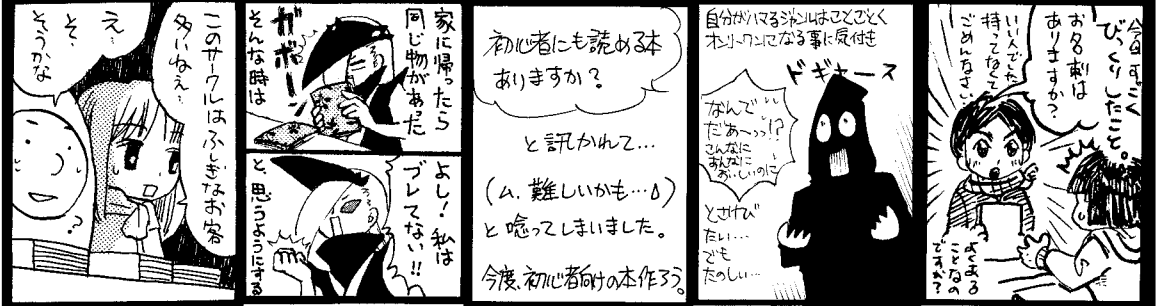 今日すごく
びっくりしたこと。
お名刺は
ありますか？
いい人でした
持ってなくて
ごめんなさい
よくある
ことなの
ですか？
自分がハマるジャンルはことごとく
オンリーワンになる事に気付き
ドギャース
なんで
だぁ〜っっ!?
こんなに
あんなに
おいしいのに
とさけび
たい…
でも
たのしい…
初心者にも読める本
ありますか？
と訊かれて…
(ム、難しいかも…)
と唸ってしまいました。
今度、初心者向けの本作ろう。
家に帰ったら
同じ物があった
ガボーン
そんな時は
よし！私は
ブレてない!!
と、思うようにする
このサークルはふしぎなお客
多いねぇ…
え…
そ、
そうかな
？